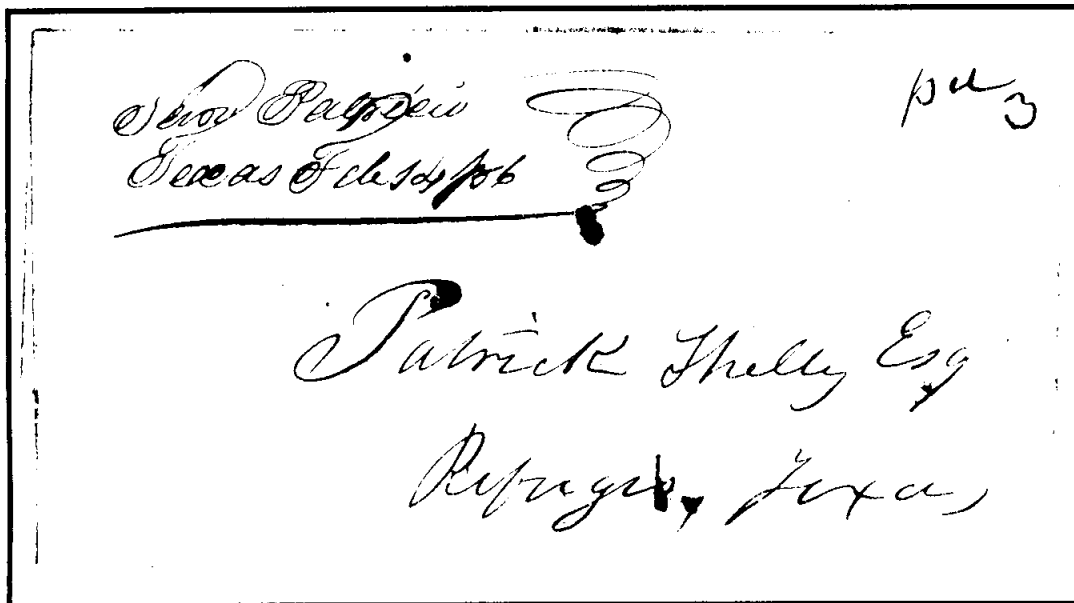 Patricio
Texas
pd 3
Patrick Shelly Esq
Refugio, Texas